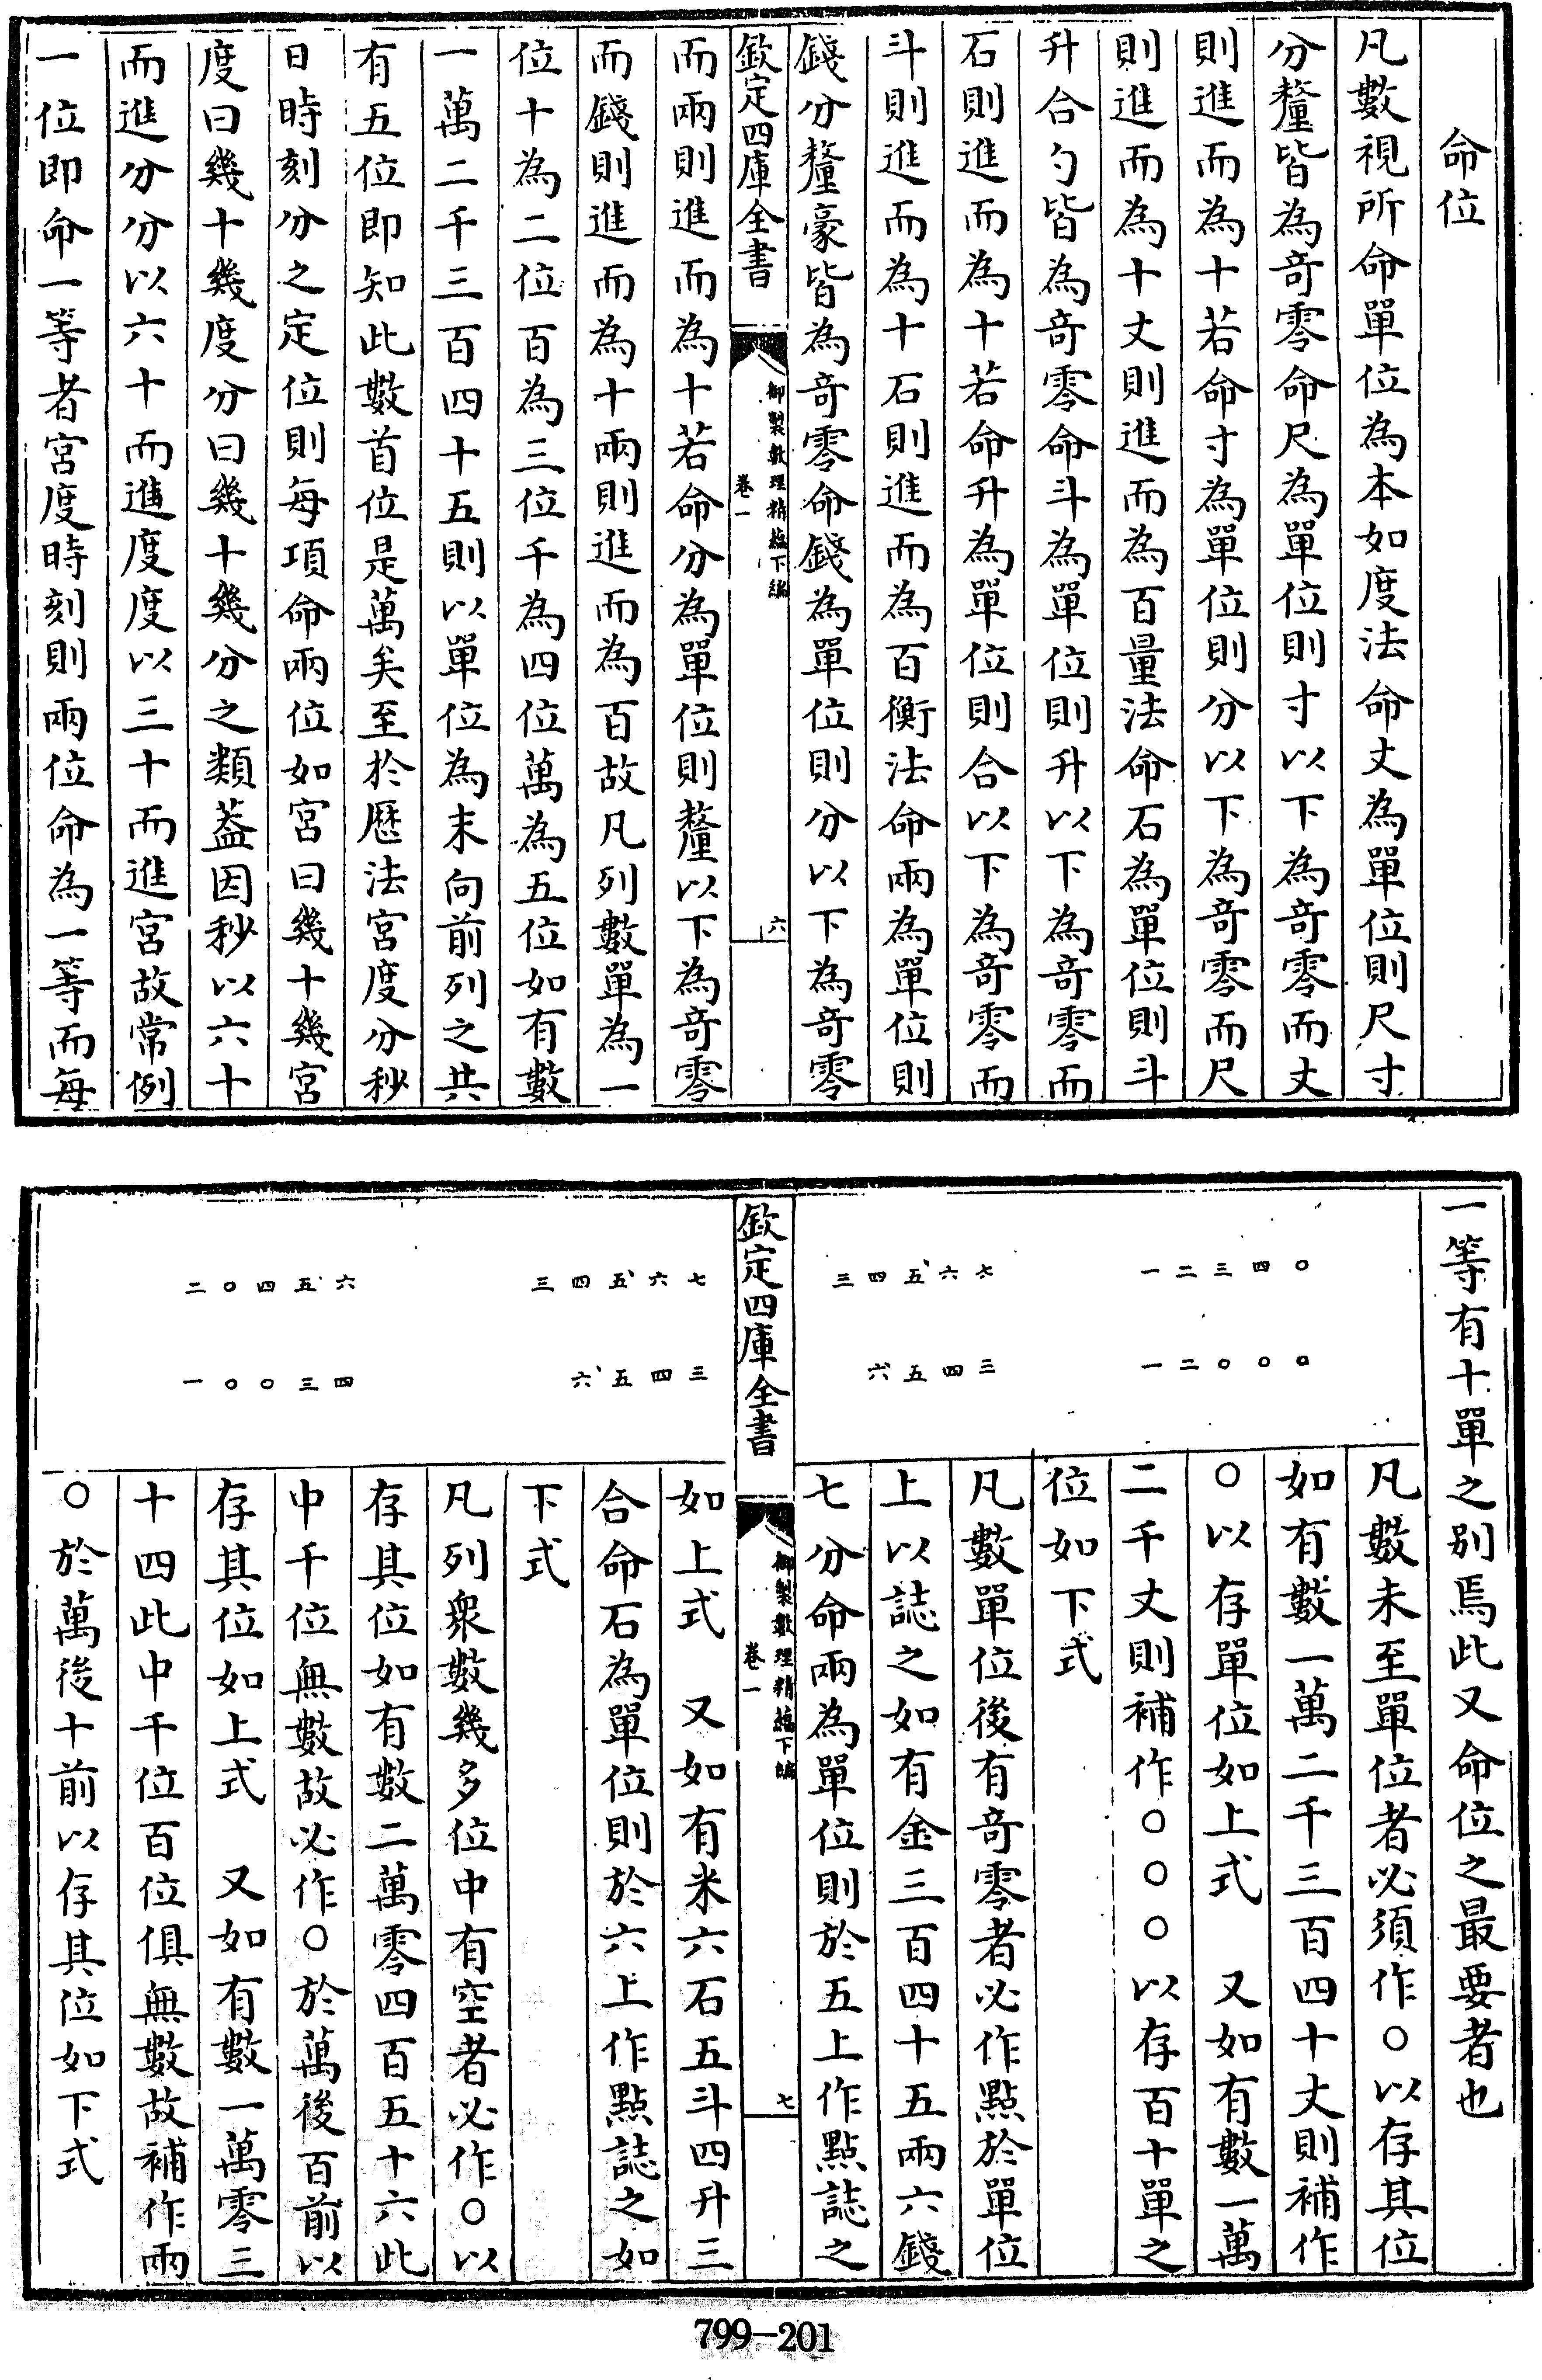 命位
凡數視所命單位為本如度法命丈為單位則尺寸
分釐皆為奇零命尺為單位則寸以下為奇零而丈
則進而為十若命寸為單位則分以下為奇零而尺
則進而為十丈則進而為百量法命石為單位則斗
升合勺皆為奇零命斗為單位則升以下為奇零而
石則進而為十若命升為單位則合以下為奇零而
斗則進而為十石則進而為百衡法命兩為單位則
錢分釐豪皆為奇零命錢為單位則分以下為奇零
欽定四庫全書
御製數理精蘊下編
卷一
六
而兩則進而為十若命分為單位則釐以下為奇零
而錢則進而為十兩則進而為百故凡列數單為一
位十為二位百為三位千為四位萬為五位如有數
一萬二千三百四十五則以單位為末向前列之共
有五位即知此數首位是萬矣至於歴法宮度分秒
日時刻分之定位則每項命兩位如宮曰幾十幾宮
度曰幾十幾度分曰幾十幾分之類葢因秒以六十
而進分分以六十而進度度以三十而進宮故常例
一位即命一等者宮度時刻則兩位命為一等而每
一等有十單之别焉此又命位之最要者也
一二三四〇
一二〇〇〇
凡數未至單位者必須作〇以存其位
如有數一萬二千三百四十丈則補作
〇以存單位如上式　又如有數一萬
二千丈則補作〇〇〇以存百十單之
位如下式
三四五、六七
六、五四三
凡數單位後有奇零者必作點於單位
上以誌之如有金三百四十五兩六錢
七分命兩為單位則於五上作點誌之
欽定四庫全書
御製數理精蘊下編
卷一
七
三四五、六七
六、五四三
如上式　又如有米六石五斗四升三
合命石為單位則於六上作點誌之如
下式
二〇四五六
一〇〇三四
凡列衆數幾多位中有空者必作〇以
存其位如有數二萬零四百五十六此
中千位無數故必作〇於萬後百前以
存其位如上式　又如有數一萬零三
十四此中千位百位俱無數故補作兩
〇於萬後十前以存其位如下式
799-201